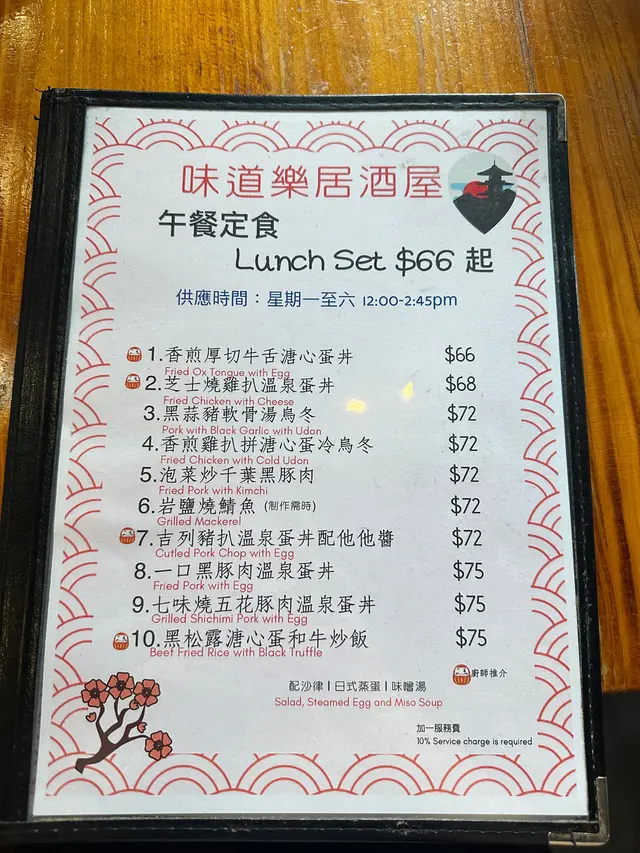 味道樂居酒屋
午餐定食
Lunch Set $66 起
供應時間：星期一至六 12:00-2:45pm
1.香煎厚切牛舌溏心蛋丼 $66
Fried Ox Tongue with Egg
2.芝士燒雞扒溫泉蛋丼 $68
Fried Chicken with Cheese
3.黑蒜豬軟骨湯烏冬 $72
Pork with Black Garlic with Udon
4.香煎雞扒拼溏心蛋冷烏冬 $72
Fried Chicken with Cold Udon
5.泡菜炒千葉黑豚肉 $72
Fried Pork with Kimchi
6.岩鹽燒鯖魚 (制作需時) $72
Grilled Mackerel
7.吉列豬扒溫泉蛋丼配他他醬 $72
Cutled Pork Chop with Egg
8.一口黑豚肉溫泉蛋丼 $75
Fried Pork with Egg
9.七味燒五花豚肉溫泉蛋丼 $75
Grilled Shichimi Pork with Egg
10.黑松露溏心蛋和牛炒飯 $75
Beef Fried Rice with Black Truffle
廚師推介
配沙律 | 日式蒸蛋 | 味噌湯
Salad, Steamed Egg and Miso Soup
加一服務費
10% Service charge is required